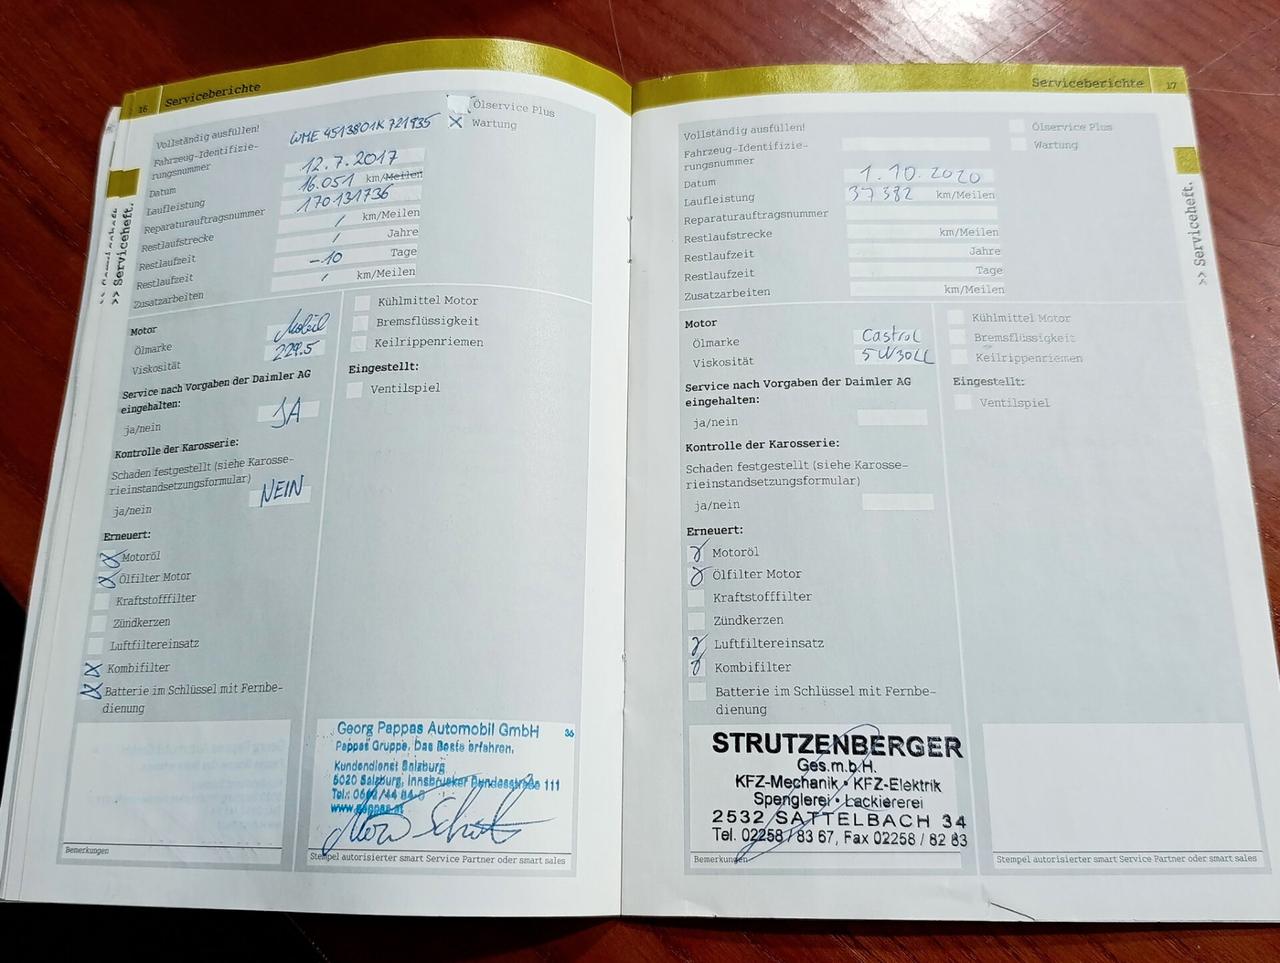 16 Serviceberichte
Vollständig ausfüllen!
Fahrzeug-Identifizie-
rungsnummer WME 4513801K 721935
Datum 12.7.2017
Laufleistung 16.051 km/Meilen
Reparaturauftragsnummer 170131736
Restlaufstrecke / km/Meilen
Restlaufzeit / Jahre
Restlaufzeit -10 Tage
Zusatzarbeiten / km/Meilen
Ölservice Plus
Wartung
Motor
Ölmarke Mobil
Viskosität 229.5
Service nach Vorgaben der Daimler AG
eingehalten:
ja/nein JA
Kontrolle der Karosserie:
Schaden festgestellt (siehe Karosse-
rieinstandsetzungsformular)
ja/nein NEIN
Erneuert:
Motoröl
Ölfilter Motor
Kraftstofffilter
Zündkerzen
Luftfiltereinsatz
Kombifilter
Batterie im Schlüssel mit Fernbe-
dienung
Kühlmittel Motor
Bremsflüssigkeit
Keilrippenriemen
Eingestellt:
Ventilspiel
Georg Pappas Automobil GmbH 36
Pappas Gruppe. Das Beste erfahren.
Kundendienst Salzburg
5020 Salzburg, Innsbrucker Bundesstraße 111
Tel.: 0662/44 84-0
www.pappas.at
Bemerkungen
Stempel autorisierter smart Service Partner oder smart sales
>> Serviceheft.
Serviceberichte 17
Vollständig ausfüllen!
Fahrzeug-Identifizie-
rungsnummer
Datum 1.10.2020
Laufleistung 37382 km/Meilen
Reparaturauftragsnummer
Restlaufstrecke km/Meilen
Restlaufzeit Jahre
Restlaufzeit Tage
Zusatzarbeiten km/Meilen
Ölservice Plus
Wartung
Motor
Ölmarke Castrol
Viskosität 5W30LL
Service nach Vorgaben der Daimler AG
eingehalten:
ja/nein
Kontrolle der Karosserie:
Schaden festgestellt (siehe Karosse-
rieinstandsetzungsformular)
ja/nein
Erneuert:
Motoröl
Ölfilter Motor
Kraftstofffilter
Zündkerzen
Luftfiltereinsatz
Kombifilter
Batterie im Schlüssel mit Fernbe-
dienung
Kühlmittel Motor
Bremsflüssigkeit
Keilrippenriemen
Eingestellt:
Ventilspiel
STRUTZENBERGER
Ges.m.b.H.
KFZ-Mechanik • KFZ-Elektrik
Spenglerei • Lackiererei
2532 SATTELBACH 34
Tel. 02258 / 83 67, Fax 02258 / 82 83
Bemerkungen
Stempel autorisierter smart Service Partner oder smart sales
>> Serviceheft.